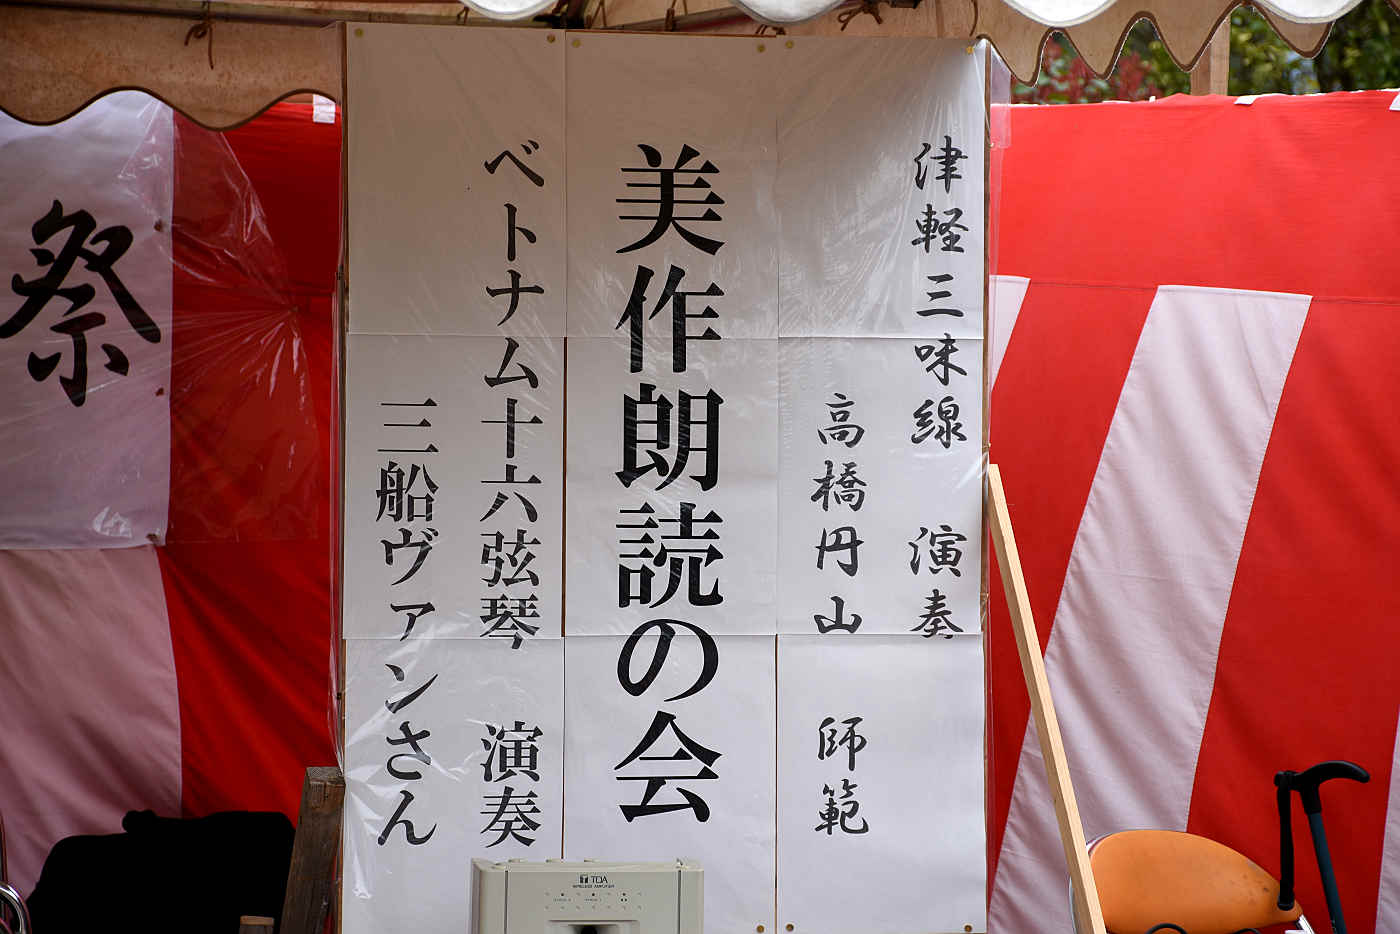 津軽三味線 演奏
高橋円山 師範
美作朗読の会
ベトナム十六弦琴 演奏
三船ヴァンさん
祭
TOA
WIRELESS AMPLIFIER